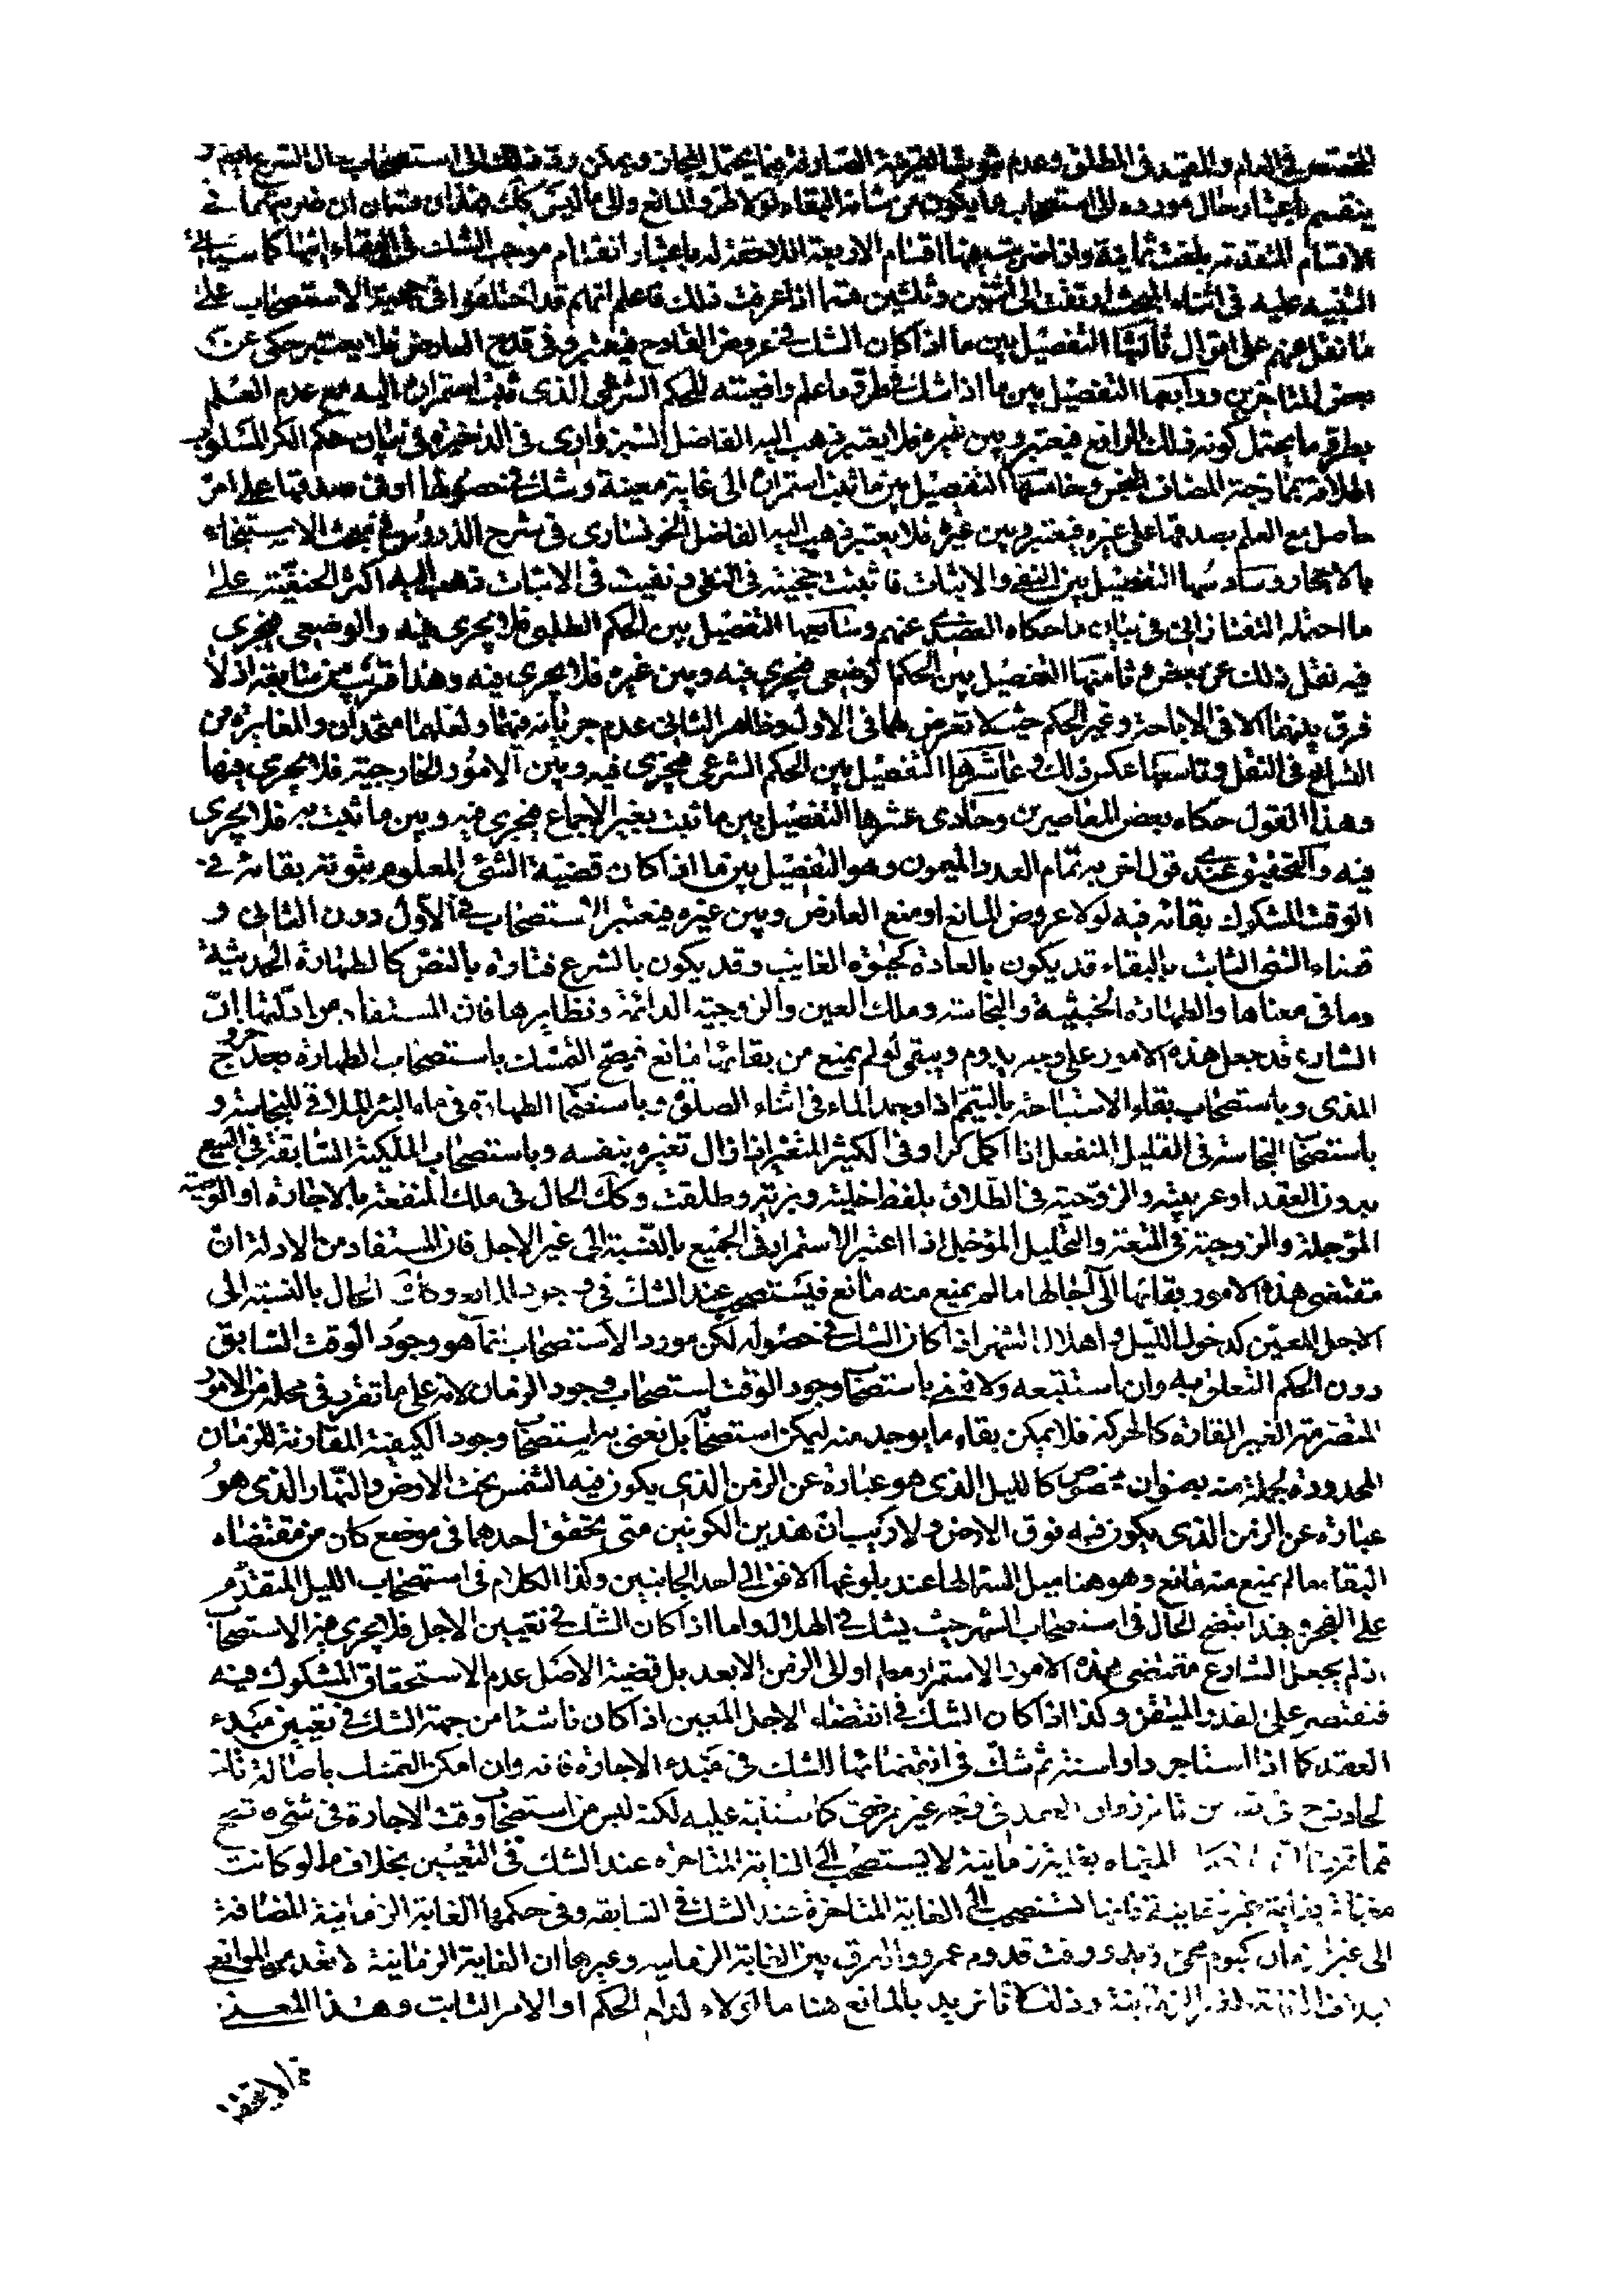 المخصص في العام والمقيد في المطلق وعدم ثبوت القرينة الصارفة فيما يحتمل المجاز ويمكن رد ذلك الى استصحاب حال الشرع ايضا و
ينقسم باعتبار حال مورده الى استصحاب ما يكون من شانه البقاء لولا طرو المانع والى ما ليس كك فهذان قسمان ان ضربتهما في
الاقسام المتقدمة بلغت ثمانية واذا ضربت هنا اقسام الاربعة اللاحقة له باعتبار انقسام موجب الشك في البقاء اليها كما سياتى
التنبيه عليه في اثناء المبحث ارتقت الى اثنين وثلثين قسما اذا عرفت ذلك فاعلم انهم قد اختلفوا في حجية الاستصحاب على
ما نقل عنهم على اقوال ثالثها التفصيل بين ما اذا كان الشك في عروض القادح فيعتبر وفي قدح العارض فلا يعتبر حكى عن
بعض المتاخرين ورابعها التفصيل بين ما اذا شك في طرو ما علم رافعيته للحكم الشرعي الذى ثبت استمراره اليه مع عدم العلم
بطرو ما يحتمل كونه ذلك الرافع فيعتبر وبين غيره فلا يعتبر ذهب اليه الفاضل السبزوارى في الذخيرة في بيان حكم الكر المسلوب
اطلاقه بممازجة المضاف النجس وخامسها التفصيل بين ما ثبت استمراره الى غاية معينة وشك في حصولها او في صدقها على امر
حاصل مع العلم بصدقها على غيره فيعتبر وبين غيره فلا يعتبر ذهب اليه الفاضل الخونسارى في شرح الدروس في مبحث الاستنجاء
بالاحجار وسادسها التفصيل بين النفى والاثبات فاثبتت حجيته في النفى ونفيت في الاثبات ذهب اليه اكثر الحنفية على
ما احتمله التفتازانى في بيان ما حكاه العضدى عنهم وسابعها التفصيل بين الحكم الطلبى فلا يجرى فيه والوضعى فيجرى
فيه نقل ذلك عن بعض وثامنها التفصيل بين الحكم الوضعى فيجرى فيه وبين غيره فلا يجرى فيه وهذا قريب من سابقه اذ لا
فرق بينهما الا في الاباحة وغير الحكم حيث لا تعرض لهما في الاول وظاهر الثانى عدم جريانه فيهما ولعلهما متحدان والمغايرة من
التسامح في النقل وتاسعها عكس ذلك وعاشرها التفصيل بين الحكم الشرعى فيجرى فيه وبين الامور الخارجية فلا يجرى فيها
وهذا القول حكاه بعض المعاصرين وحادى عشرها التفصيل بين ما ثبت بغير الاجماع فيجرى فيه وبين ما ثبت به فلا يجرى
فيه والتحقيق عندى قول اخر به تمام العدد الميمون وهو التفصيل بين ما اذا كان قضية الشئ المعلوم ثبوته بقائه في
الوقت المشكوك بقائه فيه لولا عروض المانع او منع العارض وبين غيره فيعتبر الاستصحاب في الاول دون الثانى و
قضاء الشئ الثابت بالبقاء قد يكون بالعادة كحيوة الغايب وقد يكون بالشرع فتارة بالنص كالطهارة الحدثية
وما في معناها والطهارة الخبثية والنجاسة وملك العين والزوجية الدائمة ونظايرها فان المستفاد من ادلتها ان
الشارع قد جعل هذه الامور على وجه يدوم ويبقى لو لم يمنع من بقائها مانع فيصح التمسك باستصحاب الطهارة بعد خروج
المذى وباستصحاب بقاء الاستباحة بالتيمم اذا وجد الماء في اثناء الصلوة وباستصحاب الطهارة في ماء البئر الملاقي للنجاسة و
باستصحاب النجاسة في القليل المنفعل اذا اكمل كرا وفي الكثير المتغير اذا زال تغيره بنفسه وباستصحاب الملكية السابقة في البيع
بدون العقد او عربيته والزوجية في الطلاق بلفظ خلية وبرية وطلقت وكك الحال في ملك المنفعة بالاجارة او الوصية
المؤجلة والزوجية في المتعة والتحليل المؤجل اذا اعتبر الاستمرار في الجميع بالنسبة الى غير الاجل فان المستفاد من الادلة ان
مقتضى هذه الامور بقائها الى آجالها ما لم يمنع منه مانع فيستصحب عند الشك في وجود المانع وكك الحال بالنسبة الى
الاجل المعين كدخول الليل واهلال الشهر اذا كان الشك في حصوله لكن مورد الاستصحاب انما هو وجود الوقت السابق
دون الحكم المتعلق به وان استتبعه ولا نعنى باستصحاب وجود الوقت استصحاب وجود الزمان لانه على ما تقرر في محله من الامور
المتصرمة الغير القارة كالحركة فلا يمكن بقاء ما يوجد منه ليمكن استصحابه بل نعنى به استصحاب وجود الكيفية المقارنة للزمان
المحدودة لجملة منه بعنوان مخصوص كالليل الذى هو عبارة عن الزمن الذى يكون فيه الشمس تحت الارض والنهار الذى هو
عبارة عن الزمن الذى يكون فيه فوق الارض ولا ريب ان هذين الكونين متى تحقق احدهما في موضع كان من مقتضاه
البقاء ما لم يمنع منه مانع وهو هنا ميل السماء لها عند بلوغها الافق الى احد الجانبين وكذا الكلام في استصحاب الليل المتقدم
على الفجر وبهذا يتضح الحال في استصحاب الشهر حيث يشك في الهلال واما اذا كان الشك في تعيين الاجل فلا يجرى فيه الاستصحاب
اذ لم يجعل الشارع مقتضى هذه الامور الاستمرار مط او الى الزمن الابعد بل قضية الاصل عدم الاستحقاق المشكوك فيه
فنقتصر على القدر المتيقن وكذا اذا كان الشك في انقضاء الاجل المعين اذا كان ناشئا من جهة الشك في تعيين مبدء
العقد كما اذا استاجر دارا سنة ثم شك في انقضائها للشك في مبدء الاجارة فانه وان امكن التمسك باصالة تاخر
الحادث في العقد في وجه غير مرضى كما سننبه عليه لكنه ليس من استصحاب وقت الاجارة في شئ
المغياه بغاية زمانية لا يستصحب الى الغاية المتاخرة عند الشك في التعيين بخلاف ما لو كانت
مغياة بغاية غير زمانية فانها تستصحب الى الغاية المتاخرة عند الشك في السابقة وفي حكمها الغاية الزمانية المضافة
الى غير زمان كيوم مجئ زيد ووقت قدوم عمرو والفرق بين الغاية الزمانية وغيرها ان الغاية الزمانية لا تعد من الموانع
بخلاف الغاية الغير الزمانية وذلك لانا نريد بالمانع هنا ما لولاه لدام الحكم او الامر الثابت وهذا المعنى